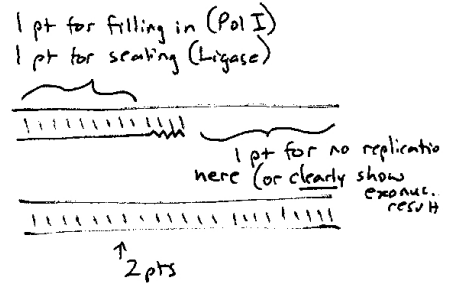 1 pt for filling in (Pol I)
1 pt for sealing (Ligase)
1 pt for no replicatio
here (or clearly show
exonuc.
result
2 pts